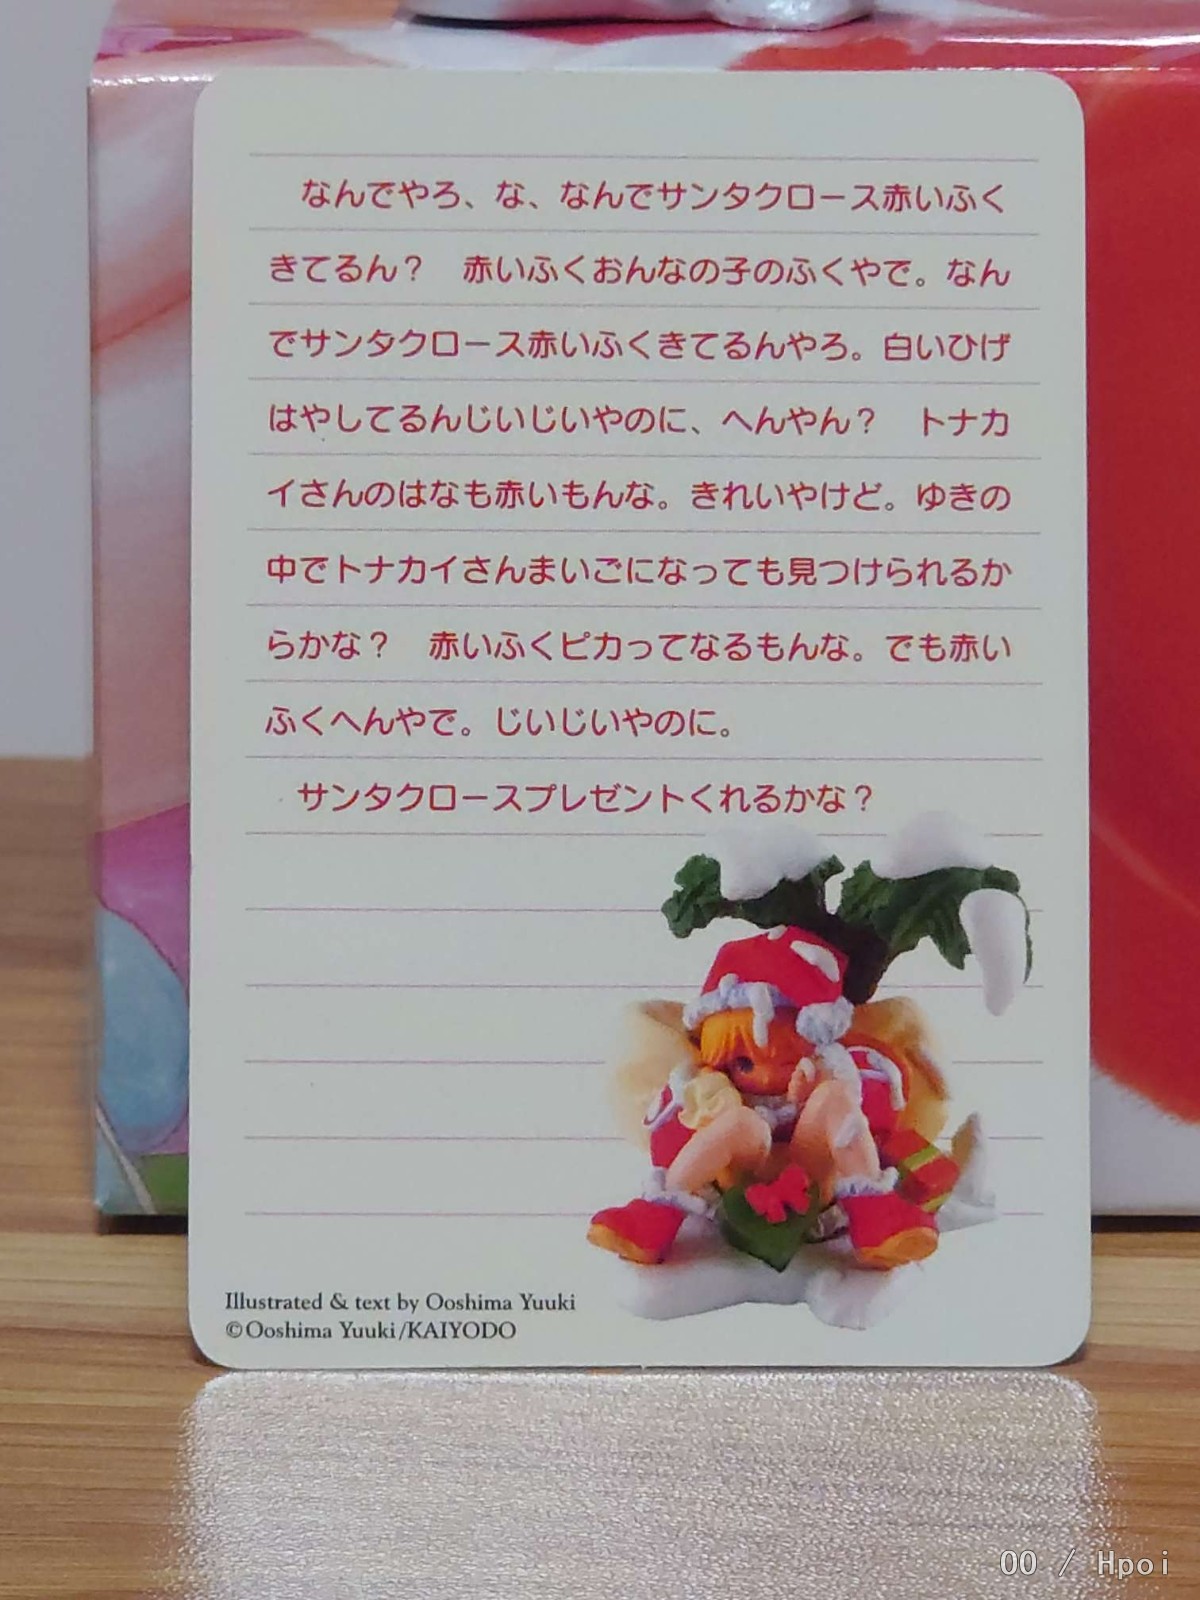 なんでやろ、な、なんでサンタクロース赤いふく
きてるん？　赤いふくおんなの子のふくやで。なん
でサンタクロース赤いふくきてるんやろ。白いひげ
はやしてるんじいじいやのに、へんやん？　トナカ
イさんのはなも赤いもんな。きれいやけど。ゆきの
中でトナカイさんまいごになっても見つけられるか
らかな？　赤いふくピカってなるもんな。でも赤い
ふくへんやで。じいじいやのに。
サンタクロースプレゼントくれるかな？
Illustrated & text by Ooshima Yuuki
©Ooshima Yuuki/KAIYODO
00 / Hpoi